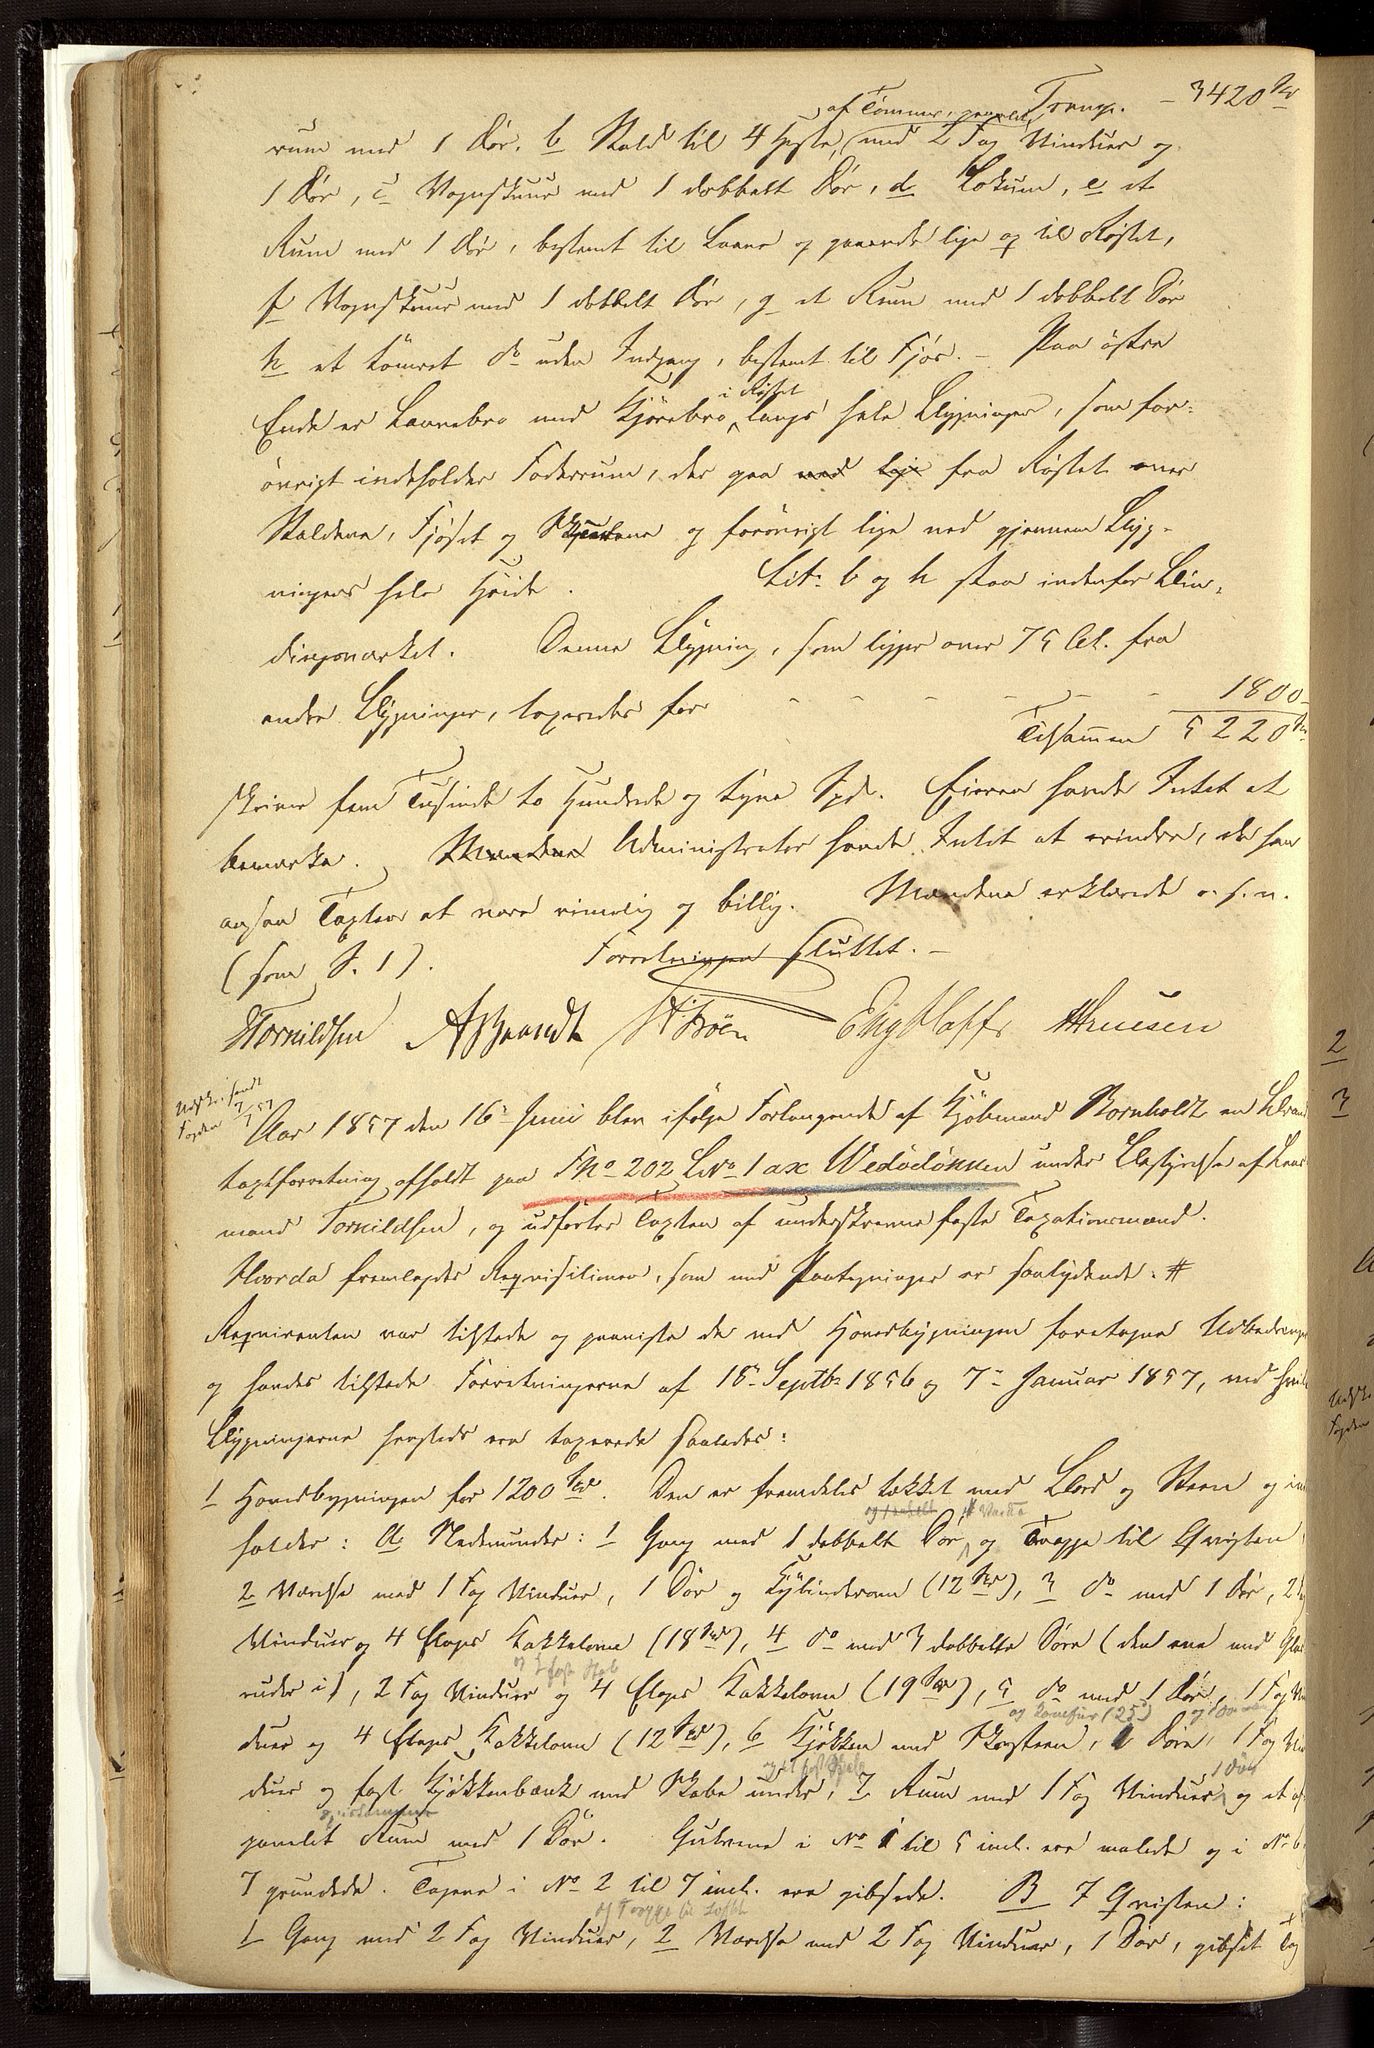 Transp. – 3420 Spd
rum med 1 Dør, b Stald til 4 Heste, af Tømmer, med 2 Fag Vinduer og
1 Dør, c Vognskuur med 1 dobbelt Dør, d Lokum, e et
Rum med 1 Dør, bestemt til Laave og gaaende lige op til Røstet,
f Vognskuur med 1 dobbelt Dør, g et Rum med 1 dobbelt Dør
h et tømret do uden Indgang, bestemt til Fjøs. – Paa østre
Ende er Laavebro med Kjørebro i Røstet langs hele Bygningen, som for-
øvrigt indeholder Foderrum, der gaa med lige fra Røstet over
Stalden, Fjøset og Skuurene og forøvrigt lige ned gjennem Byg-
ningens hele Høide. Lit. b og h staa indenfor Bin-
dingsværket. Denne Bygning, som ligger over 75 Al. fra
andre Bygninger, taxeredes for - - - - - - 1800 -
Tilsammen 5220 Spd
skriver fem Tusinde to Hundrede og tyve Spd. Eieren havde Intet at
bemærke. Mændene Administrator havde Intet at erindre, da han
ansaa Taxten at være rimelig og billig. Mændene erklærede o.s.v.
(som S. 1). Forretningen sluttet. –
Tornildsen A Brandt Bøen Hansen
Udskr. sendt
Fogden
Aar 1857 den 16de Juni blev ifølge Forlangende af Kjøbmand Bornholdt en Brand
taxtforretning afholdt paa No 202 LNo 1 ax Wedødönnen under Bestyrelse af Lens
mand Tornildsen, og udførtes Taxten af underskrevne faste Taxationsmænd.
Hvorda fremlagdes Requisitionen, som med Paategninger er saalydende. #
Requirenten var tilstede og paaviste de ved Hovedbygningen foretagne Udbedringer
og havdes tilstede Forretningerne af 18de Septbr 1856 og 7de Januar 1857, ved hvilke
Bygningerne hersteds ere taxerede saaledes:
1 Hovedbygningen for 1200 Spd. Den er fremdeles tækket med Bord og Steen og inde
holder: A Nedenunder: 1 Gang med 1 dobbelt Dør og Trappe til Qvisten
2 Værelse med 1 Fag Vinduer, 1 Dør og Cylinderovn (12 Spd), 3 do med 1 Dør, 2 Fag
Vinduer og 4 Etages Kakkelovn (18 Spd), 4 do med 3 dobbelte Døre (den ene med Glas
ruder i), 2 Fag Vinduer og 4 Etages Kakkelovn (19 Spd), 5 do med 1 Dør, 1 Fag Vin
duer og 4 Etages Kakkelovn (12 Spd), 6 Kjøkken med Skorsteen, og Komfur (25) Døre, 1 Fag Vin
duer og fast Kjøkkenbænk med Skabe under, 7 Rum med 1 Fag Vinduer 1 Dør og et af
panelet Rum med 1 Dør. Gulvene i No 1 til 5 incl. ere malede og i No 6
7 grundede. Tagene i No 2 til 7 incl. ere gibsede. B I Qvisten:
1 Gang med 2 Fag Vinduer, og Trappe til Loftet 2 Værelse med 2 Fag Vinduer, 1 Dør, gibset Tag